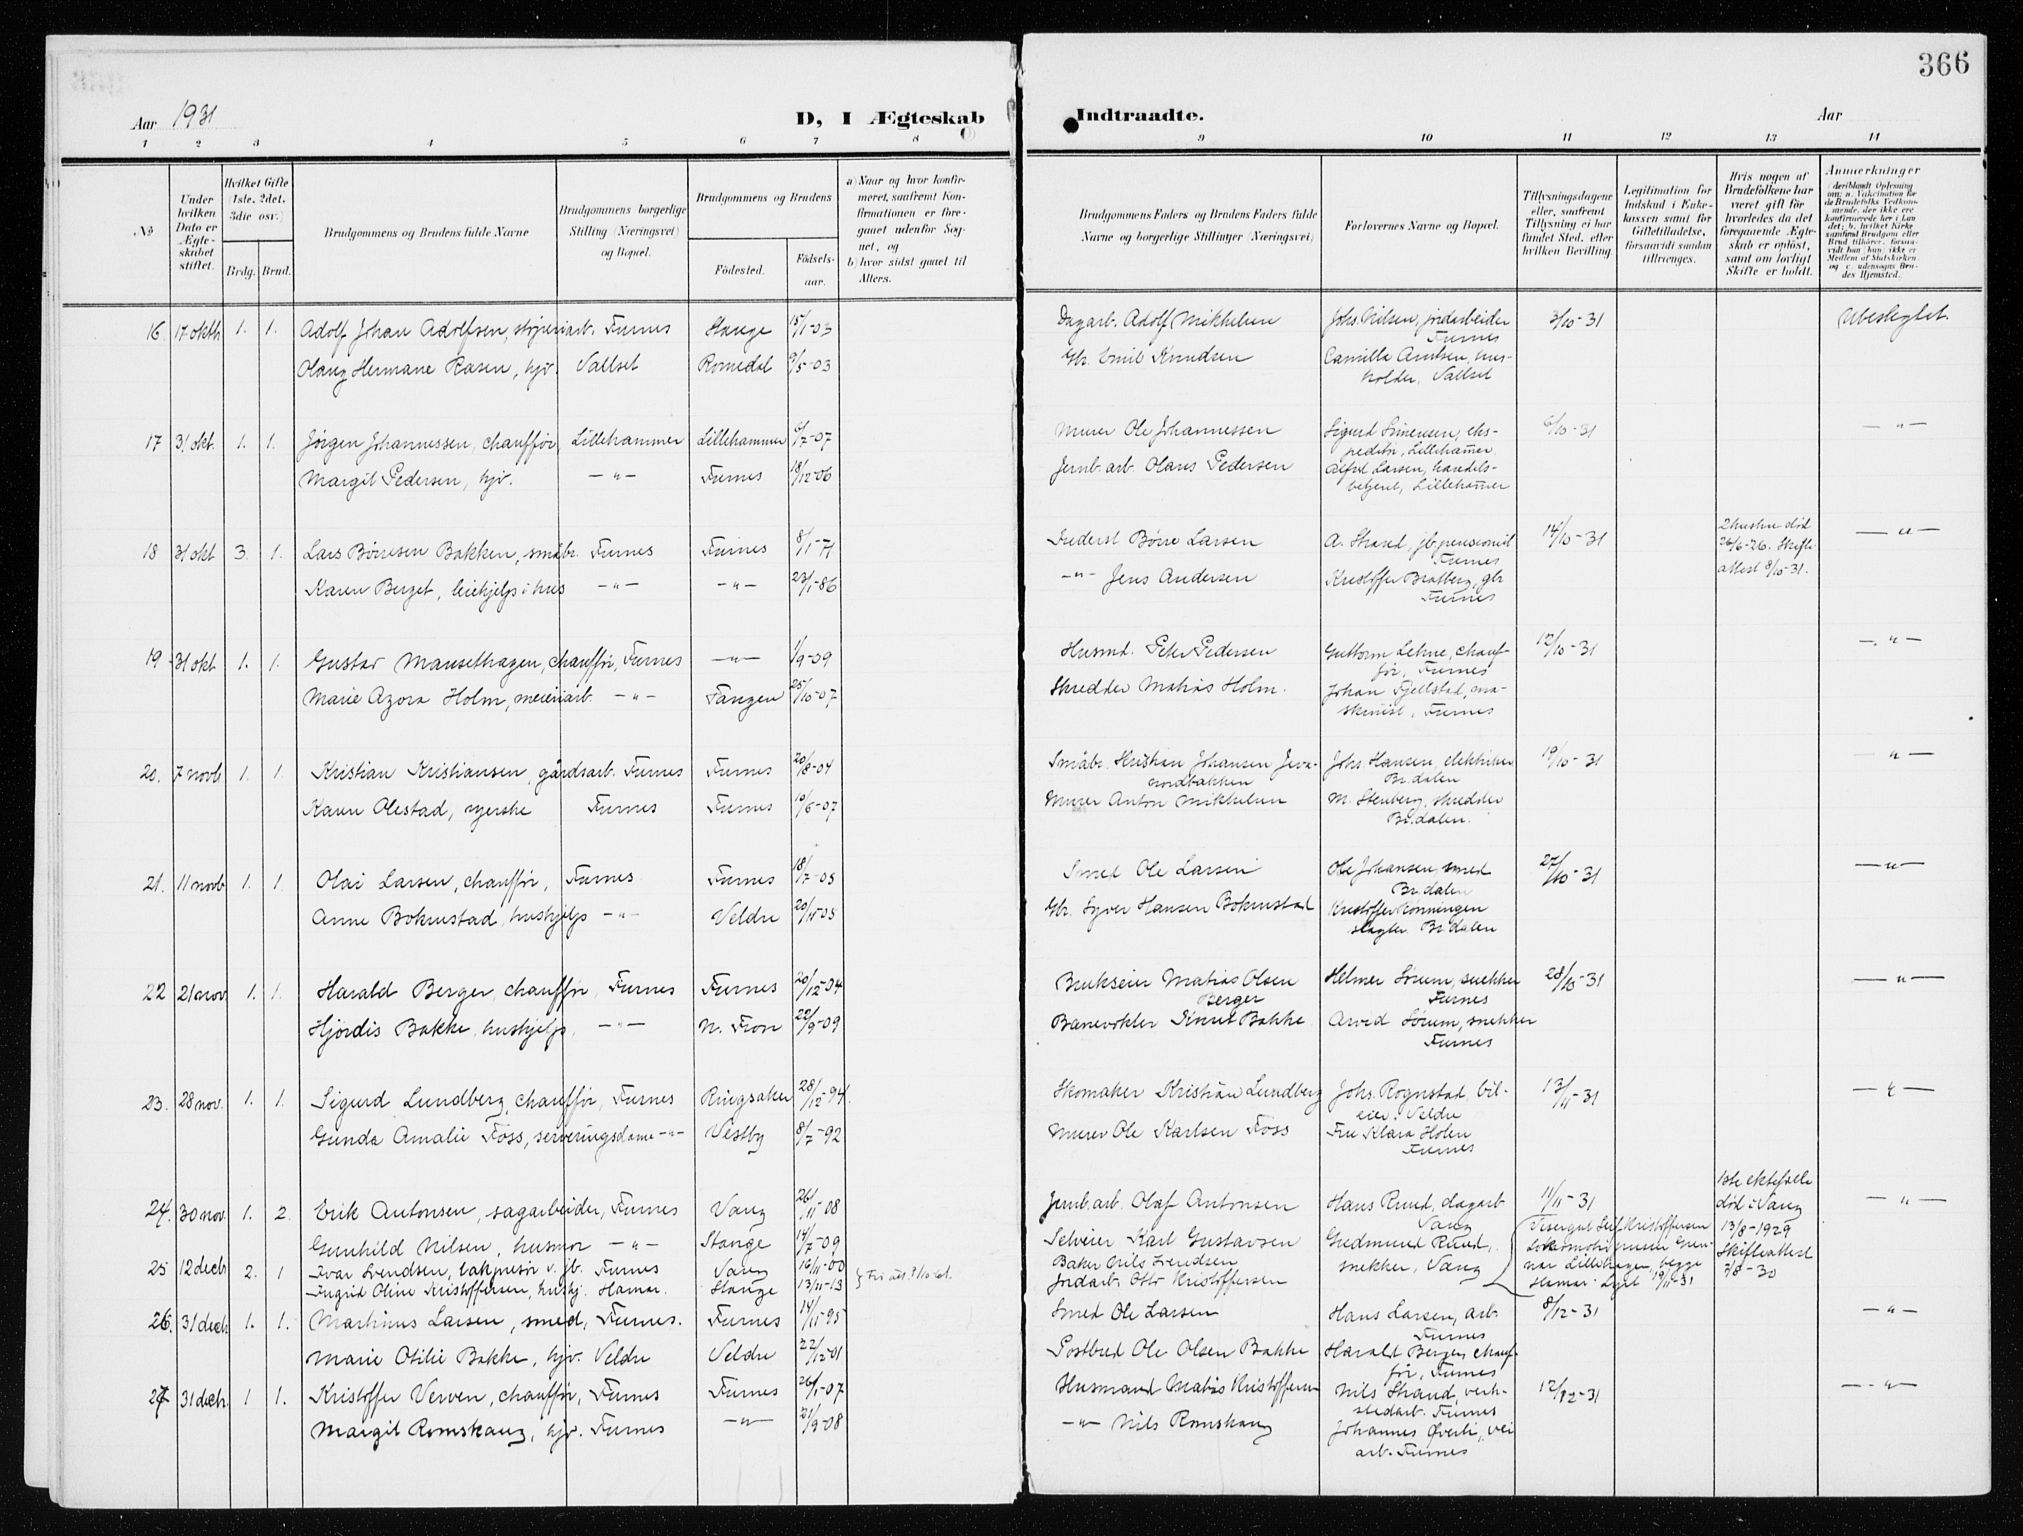 366
Aar 1931
D, I Ægteskab
Indtraadte.
Aar
1 2 3 4 5 6 7 8 9 10 11 12 13 14
No
Under hvilken Dato er Ægteskabet stiftet.
Hvilket Gifte (1ste, 2det, 3die osv.)
Brdg. Brud.
Brudgommens og Brudens fulde Navne
Brudgommens borgerlige Stilling (Næringsvei) og Bopæl.
Brudgommens og Brudens
Fødested.
Fødselsaar.
a) Naar og hvor konfirmeret, saafremt Konfirmationen er foregaaet udenfor Sognet, og
b) hvor sidst gaaet til Alters.
Brudgommens Faders og Brudens Faders fulde Navne og borgerlige Stillinger (Næringsvei)
Forlovernes Navne og Bopæl.
Tillysningsdagene eller, saafremt Tillysning ei har fundet Sted, efter hvilken Bevilling.
Legitimation for Indskud i Enkekassen samt for Giftetilladelse, forsaavidt saadan tiltrænges.
Hvis nogen af Brudefolkene har været gift før, hvorledes da det foregaaende Ægteskab er opløst, samt om lovligt Skifte er holdt.
Anmerkninger
16. 17 oktb 1. 1. Adolf Johan Adolfsen, støperiarb. Furnes Stange 15/1-03 Dagarb. Adolf Mikkelsen Johs. Nilsen, jordarbeider 3/10-31 Ubeslegtet.
Furnes
Hermane Rasen, hjv. Vallset Romedal 9/5-03 Gbr. Emil Knudsen Camilla Arntsen, hus-
holder, Vallset
17 31 okt. 1. 1. Jørgen Johannessen, chauffør, Lillehammer Lillehammer 6/7-07 Murer Ole Johannessen Sigurd Simensen, eks- 6/10-31 —"—
peditør, Lillehammer
Margit Pedersen, hjv. —"— Furnes 18/12-06 Jernb.arb. Olaus Pedersen Alfred Larsen, handels-
betjent, Lillehammer
18 31 okt 3. 1. Lars Børresen Bakken, småbr. Furnes Furnes 8/1-71 Inderst Børre Larsen A. Strand, jb.pensionist 14/10-31 2 hustru død —"—
Furnes 26/6-26. Skifte-
Karen Berget, leiehjelp i hus —"— —"— 23/1-86 —"— Jens Andersen Kristoffer Bratberg, gbr attest 8/10-31.
Furnes
19 31 okt 1. 1. Gustav Mauselhagen, chauffør, Furnes —"— 1/9-09 Husmd. Peter Pedersen Guttorm Lehne, chauf- 12/10-31 —"—
før, Furnes
Marie Azora Holm, meieriarb. —"— Tangen 25/10-07 Skredder Matias Holm. Johan Fjellstad, ma-
skinist, Furnes
20. 7 novb 1. 1. Kristian Kristiansen, gårdsarb. Furnes Furnes 20/8-04 Småbr. Kristian Johansen Johs. Hansen, elektriker 19/10-31 —"—
Br.dalen
Karen Olestad, syerske Furnes Furnes 10/6-07 Murer Anton Mikkelsen M. Stenberg, skredder
Br.dalen.
21. 11 novb 1. 1. Olai Larsen, chauffør, Furnes Furnes 18/7-05 Smed Ole Larsen Ole Johansen, smed 27/10-31 —"—
Br.dalen
Anne Bokmstad, hushjelp —"— Veldre 20/11-05 Gbr. Syver Hansen Bokmstad Kristoffer Rønningen
slagter Br.dalen
22 21 nov 1. 1. Harald Berger, chauffør, Furnes Furnes 20/12-04 Brukseier Matias Olsen Helmer Sørum, snekker 28/10-31 —"—
Berger Furnes
Hjørdis Bakke, hushjelp, —"— N. Fron 22/9-09 Banevokter Bakke Arvid Sørum, snekker
Furnes
23. 28 nov. 1. 1. Sigurd Lundberg, chauffør, Furnes Ringsaker 28/12-94 Skomaker Kristian Lundberg Johs. Rognstad bil- 13/11-31 —"—
eier, Veldre
Gunda Amalie Foss, serveringsdame —"— Vestby 8/7-92 Murer Ole Karlsen Foss Fru Klara Holen
Furnes
24. 30 nov. 1. 2. Erik Antonsen, sagarbeider, Furnes Vang 26/11-08 Jernb.arb. Olaf Antonsen Hans Ruud, dagarb 11/11-31 1ste ektefelle —"—
Vang død i Vang
Gunhild Nilsen, husmor —"— Stange 14/7-09 Selveier Karl Gustavsen Gudmund Ruud, 13/8-1929
snekker, Vang Skifteattest
7/8-30
25 12 decb 2. 1 Ivar Svendsen, bakpusser v. jb. Furnes Vang 16/11-00 Baker Nils Svendsen Leif Kristoffersen
Lokomotivpusser
Ingrid Oline Kristoffersen, hushj. Hamar. Stange 13/11-13 Jordarb. Otto Kristoffersen nar Lillehagen, begge
Hamar. Lyst 19/11-31
26. 31 decb 1. 1. Martinus Larsen, smed, Furnes. Furnes 14/11-95 Smed Ole Larsen Hans Larsen, arb. 8/12-31 —"—
Furnes
Marie Otilie Bakke, hjv. Veldre Veldre 22/12-01 Postbud Ole Olsen Bakke Harald Berger, chauf-
før, Furnes
27. 31 decb. 1 1. Kristoffer Verven, chauffør, Furnes Furnes 26/1-07 Husmand Matias Kristoffersen Nils Strand, verk- 12/12-31 —"—
stedarb. Furnes
Margit Romskaug, hjv. Furnes —"— 21/9-08 —"— Nils Romskaug Johannes Øverli, vei
arb. Furnes